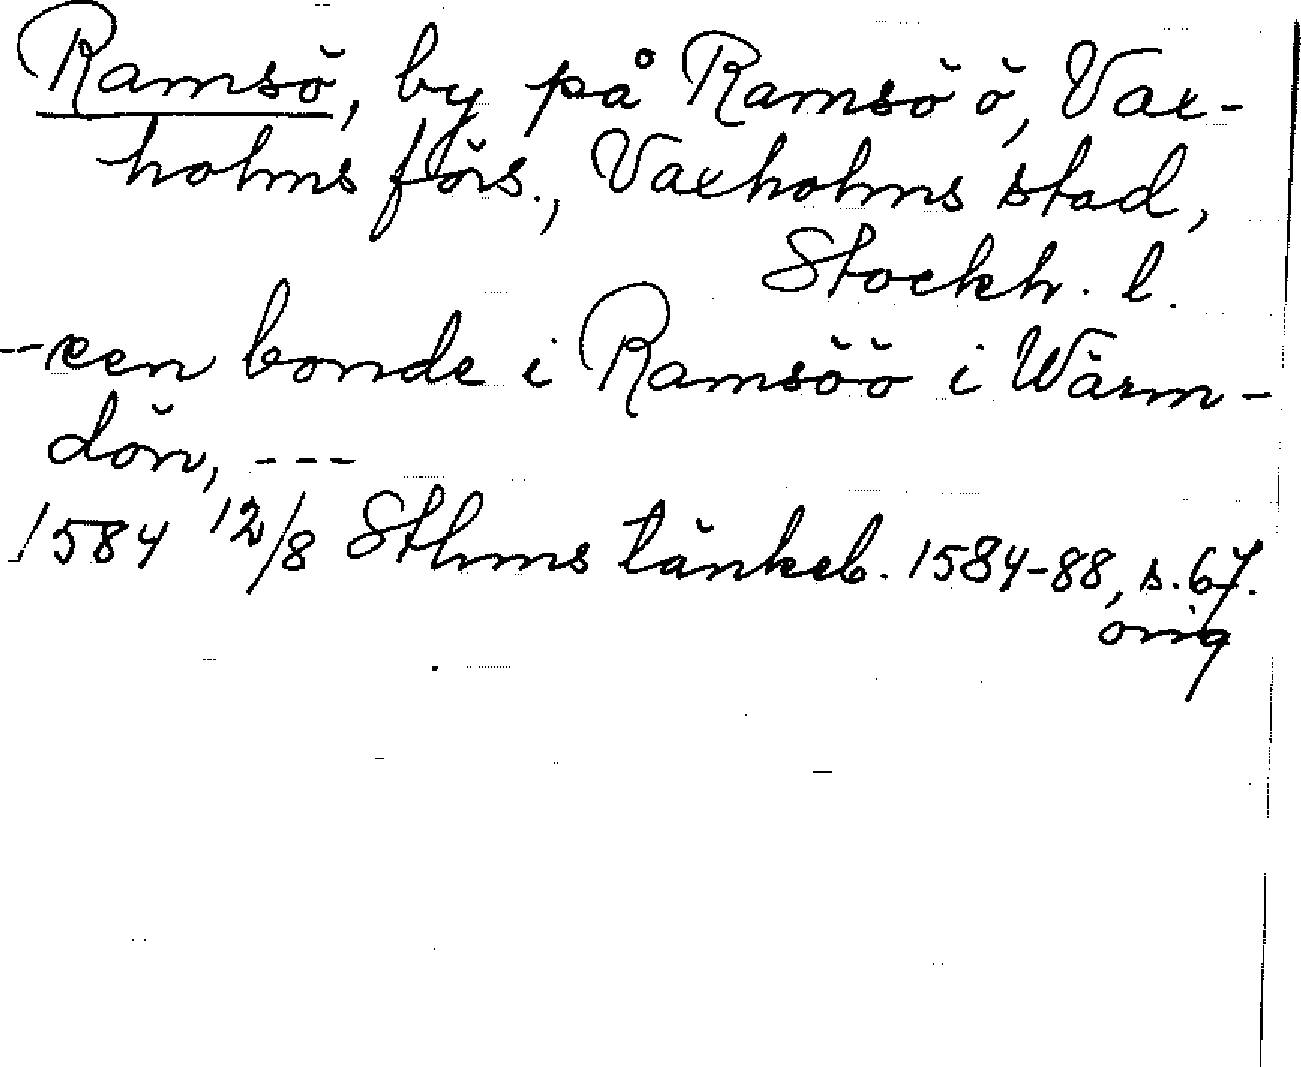 Ramsö, by på Ramsö ö, Vax-
holms förs., Vaxholms stad,
Stockh. l.
-een bonde i Ramsöö i Wärm-
dön, ---
1584 12/8 Sthms tänkeb. 1584-88, s. 67.
orig